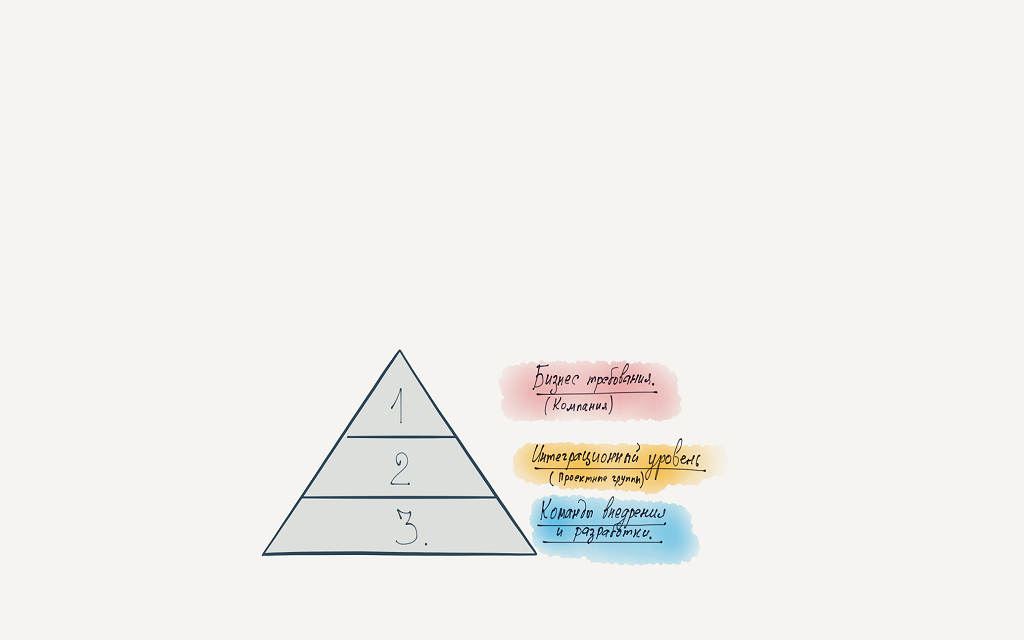 1
Бизнес требования.
(Компания)
2
Интеграционный уровень
(Проектные группы)
3.
Команды внедрения
и разработки.